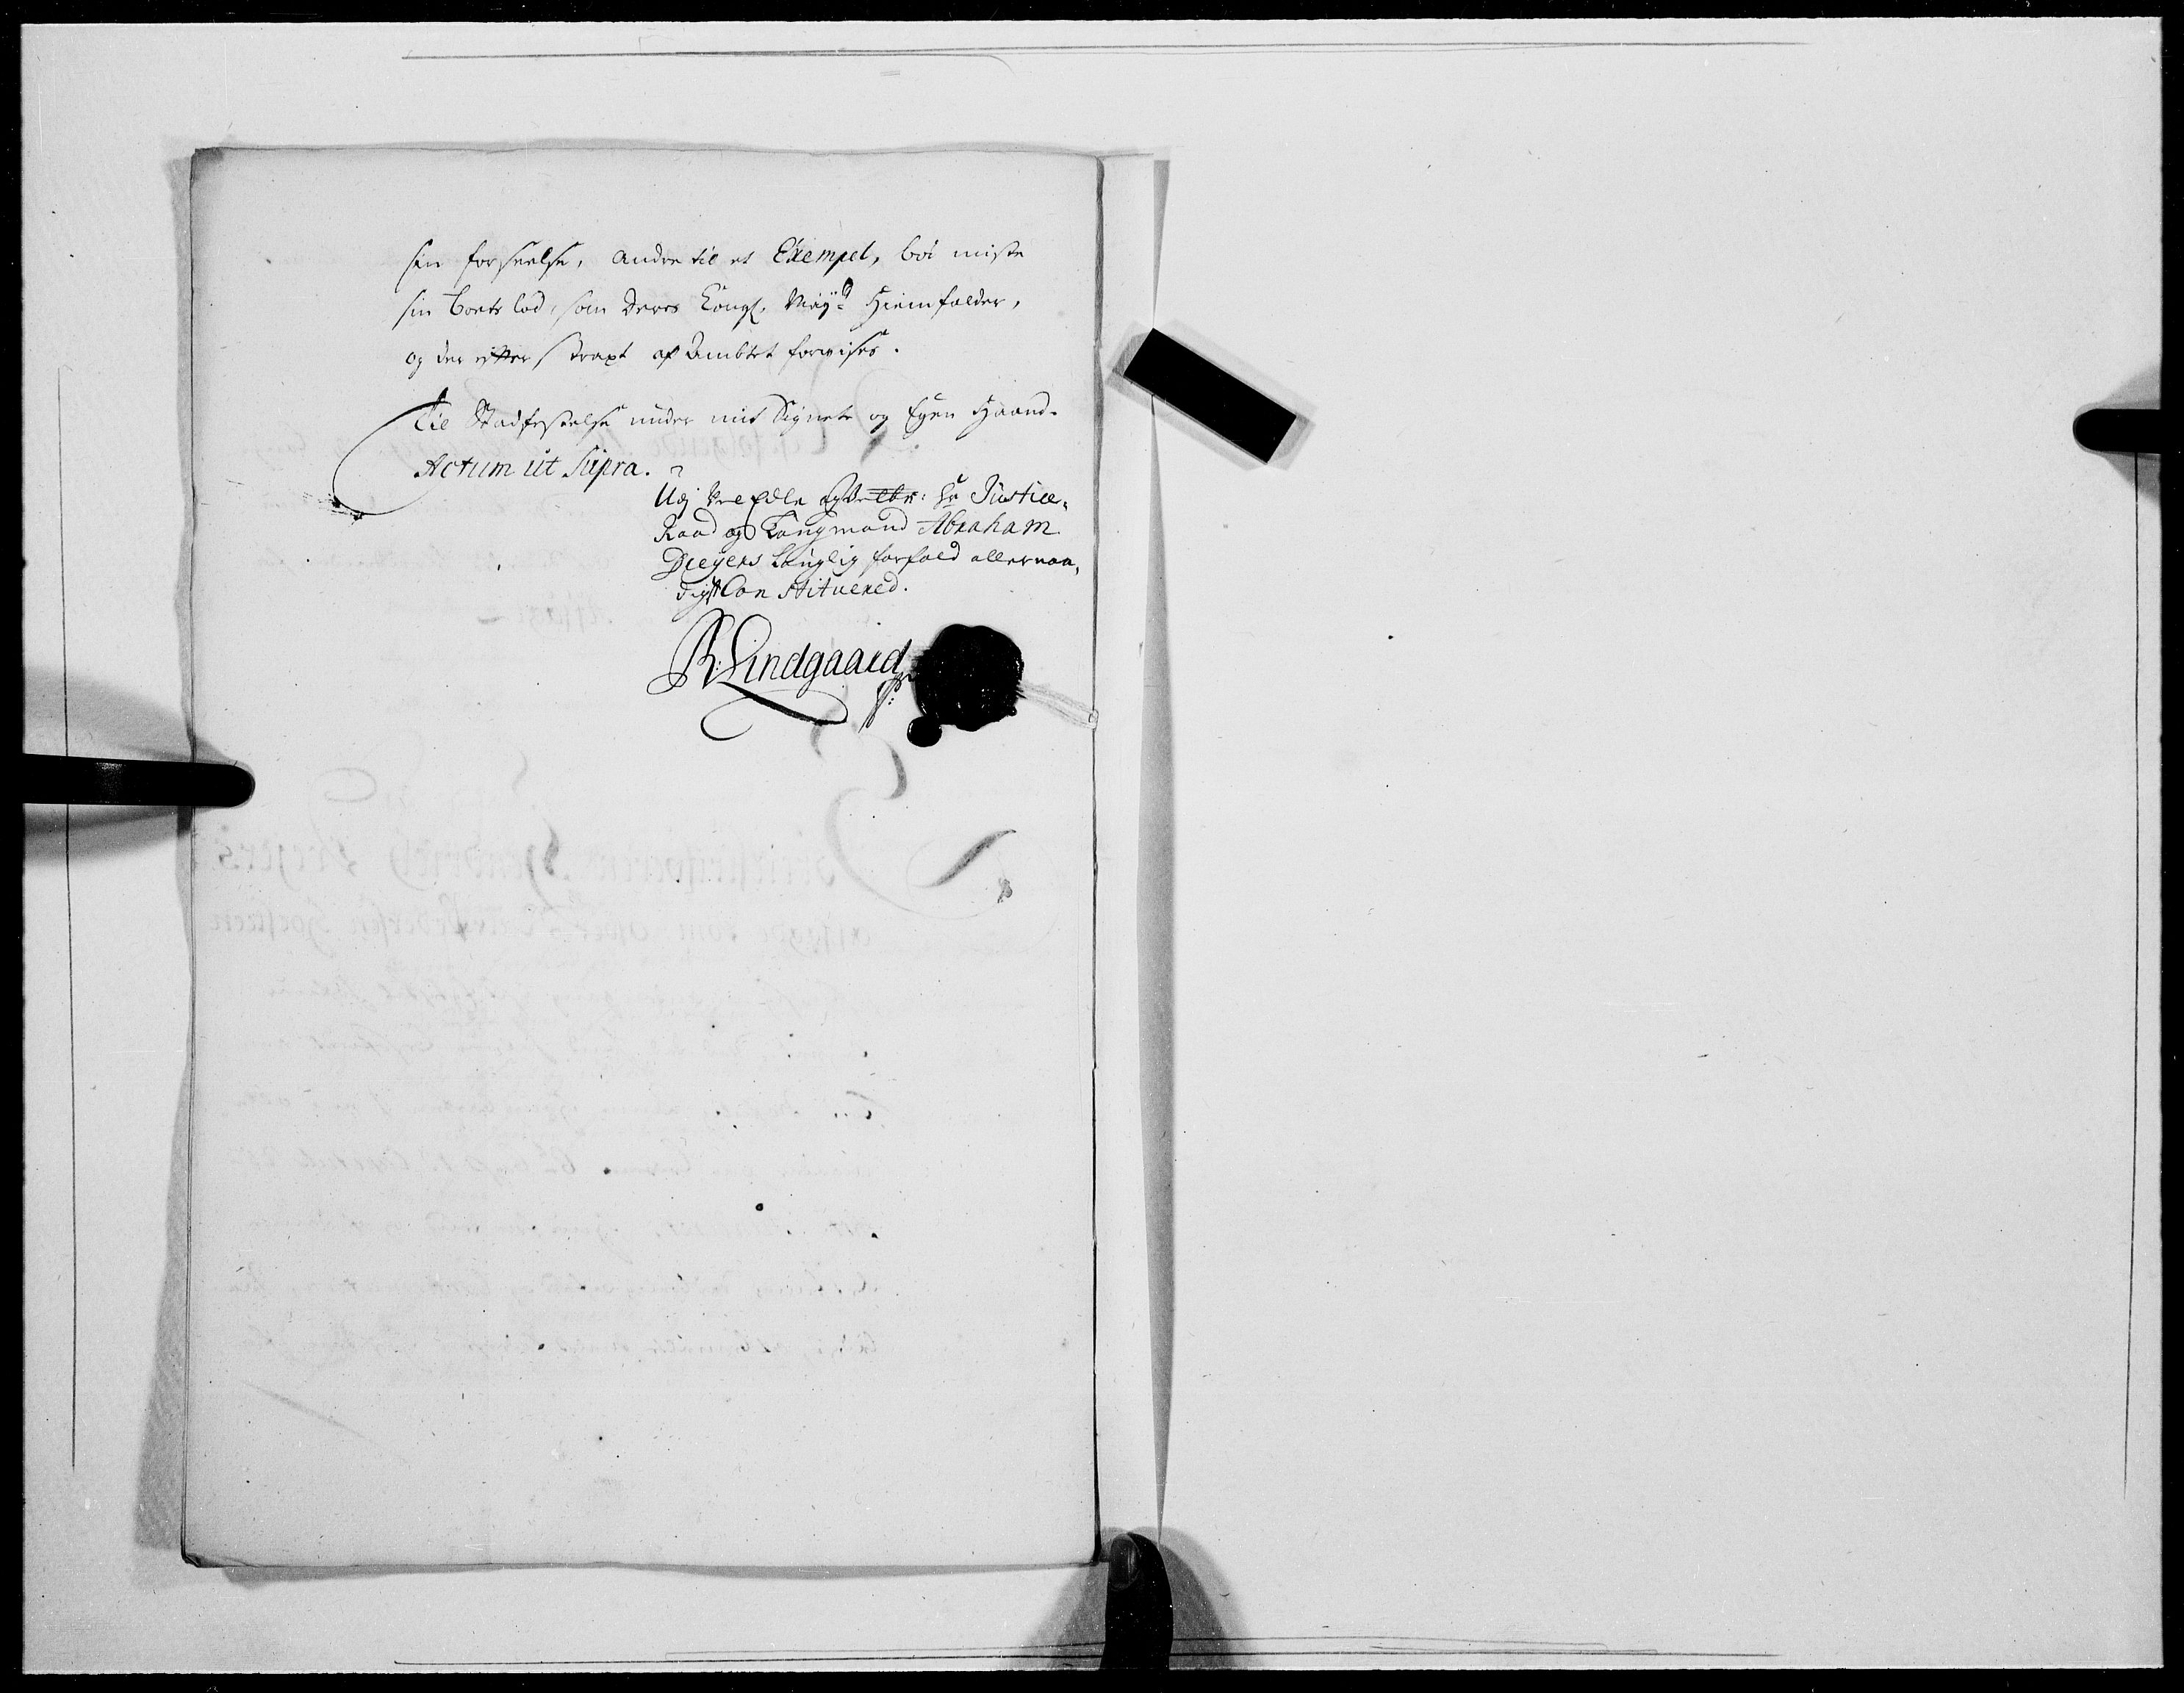 sin forseelse, andre til et Exempel, bör miste
sin boets lod, som deres Kongl. Mayts hiemfalder,
og der efter straxt af Ambtet forvises.
Til Stadfestelse under mit Signete og Egen Haand.
Actum ut Supra.
Udj Vel Edle og Velbr: Hr Justice,
Raad og Laugmand Abraham
Dreyers lauglig forfald allernaa,
digst Constituered.
R: Lindgaard